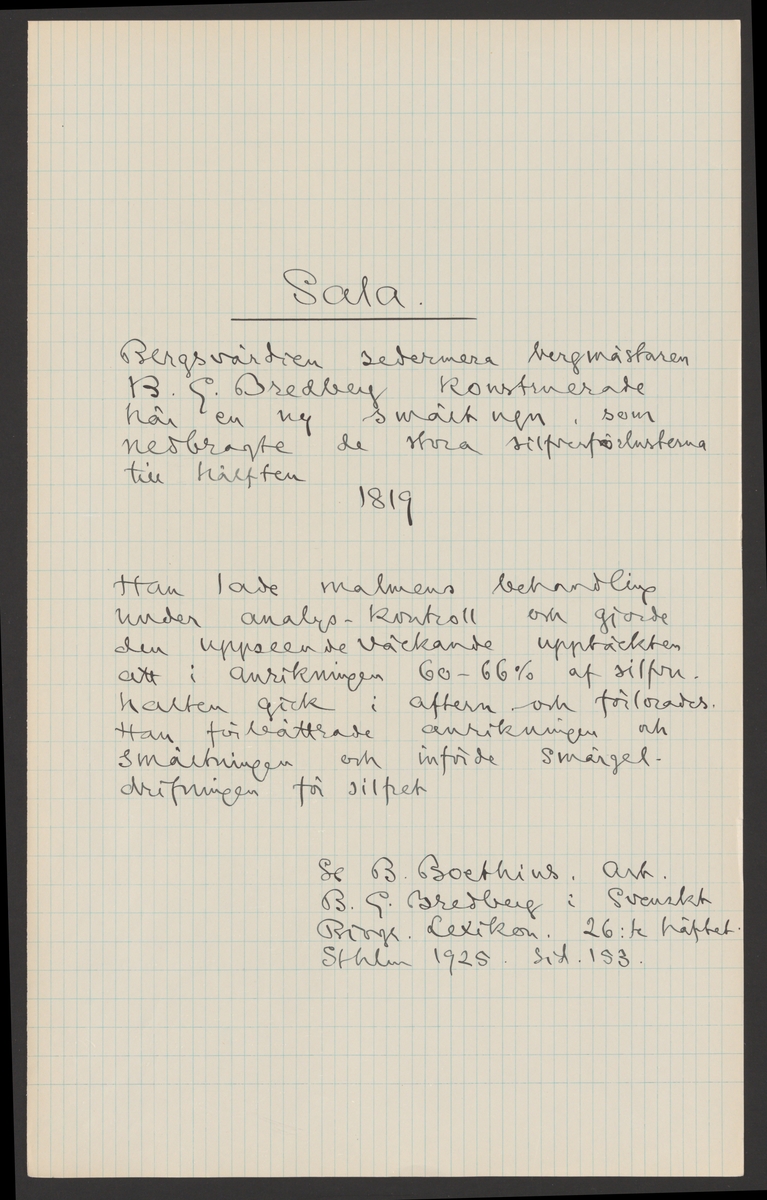 Sala.
Bergsvärdien sedermera bergmästaren
B. G. Bredberg konstruerade
här en ny smältugn, som
nedbragte de stora silfverförlusterna
till hälften
1819
Han lade malmens behandling
under analys-kontroll och gjorde
den uppseendeväckande upptäckten
att i anrikningen 60-66% af silfver-
halten gick i aftern och förlorades.
Han förbättrade anrikningen och
smältningen och införde smärgel-
drifningen för silfret
Se B. Boethius. Art.
B. G. Bredberg i Svenskt
Biogr. Lexikon. 26:te häftet.
Sthlm 1925. Sid. 153.